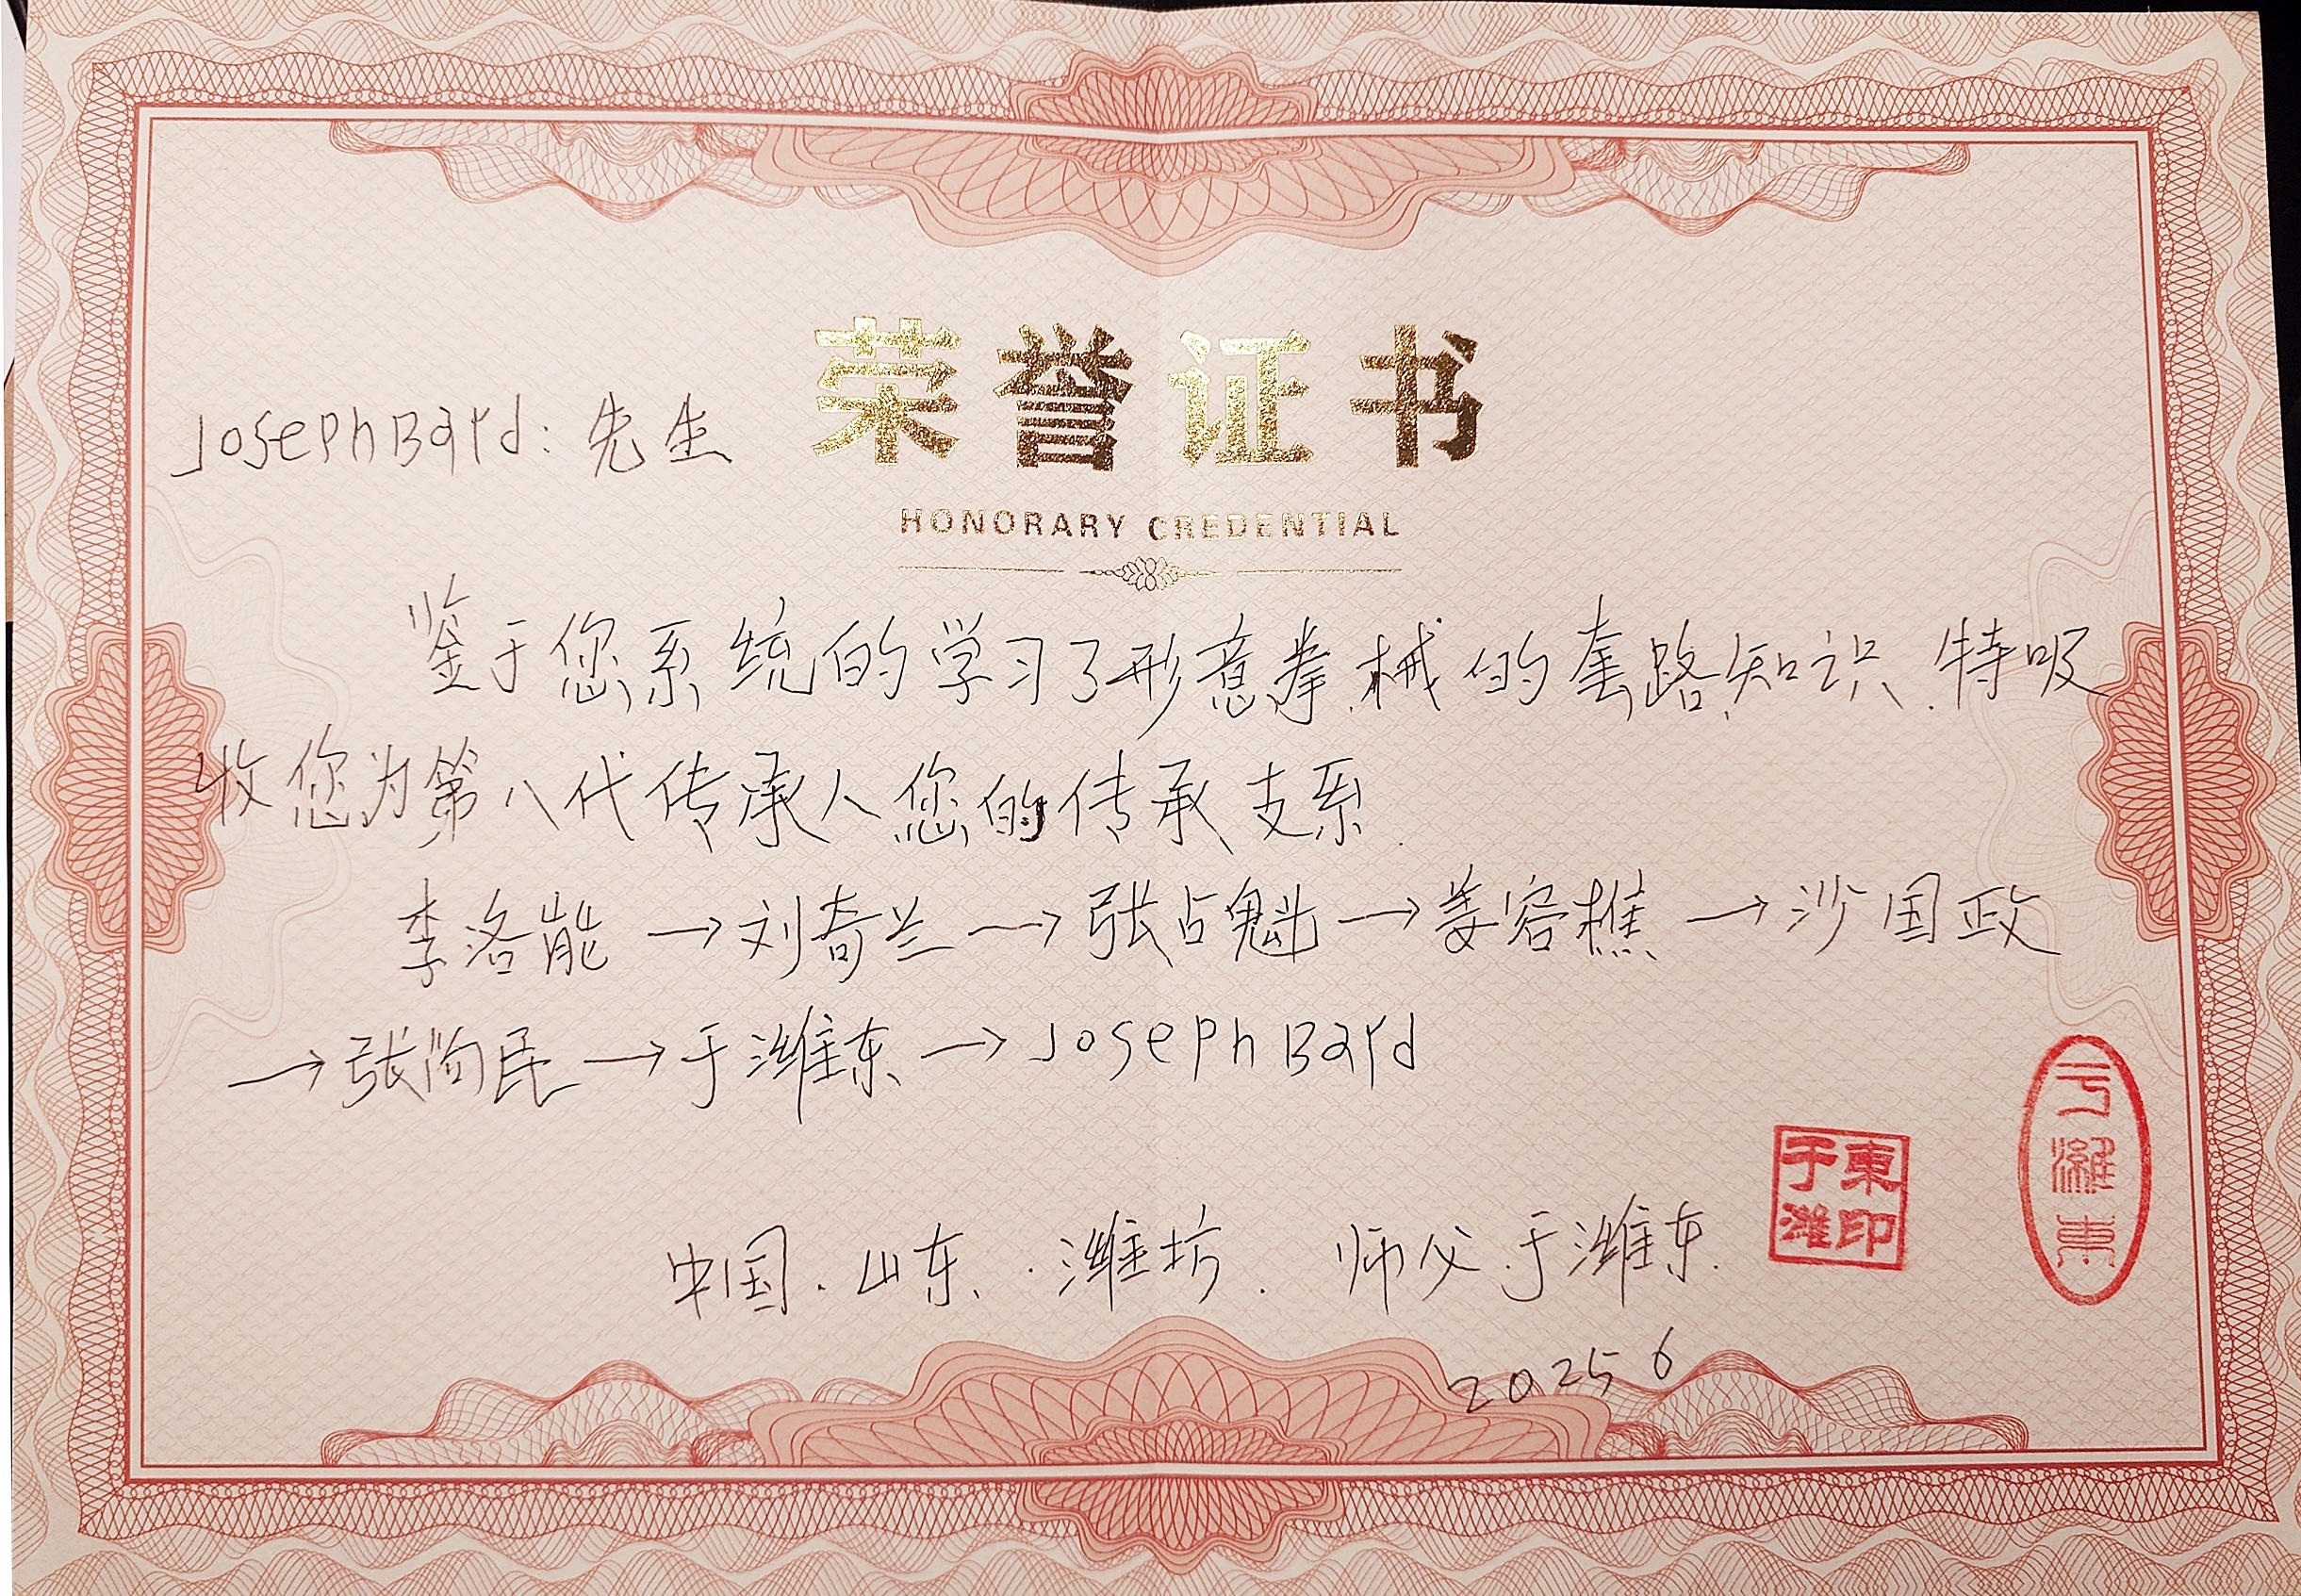 荣誉证书
Joseph Bard: 先生
HONORARY CREDENTIAL
鉴于您系统的学习了形意拳.械的套路.知识.特吸
收您为第八代传承人您的传承支系.
李洛能→刘奇兰→张占魁→姜容樵→沙国政
→张询民→于潍东→Joseph Bard
中国.山东.潍坊. 师父.于潍东.
2025 6
于潍東印
于潍東